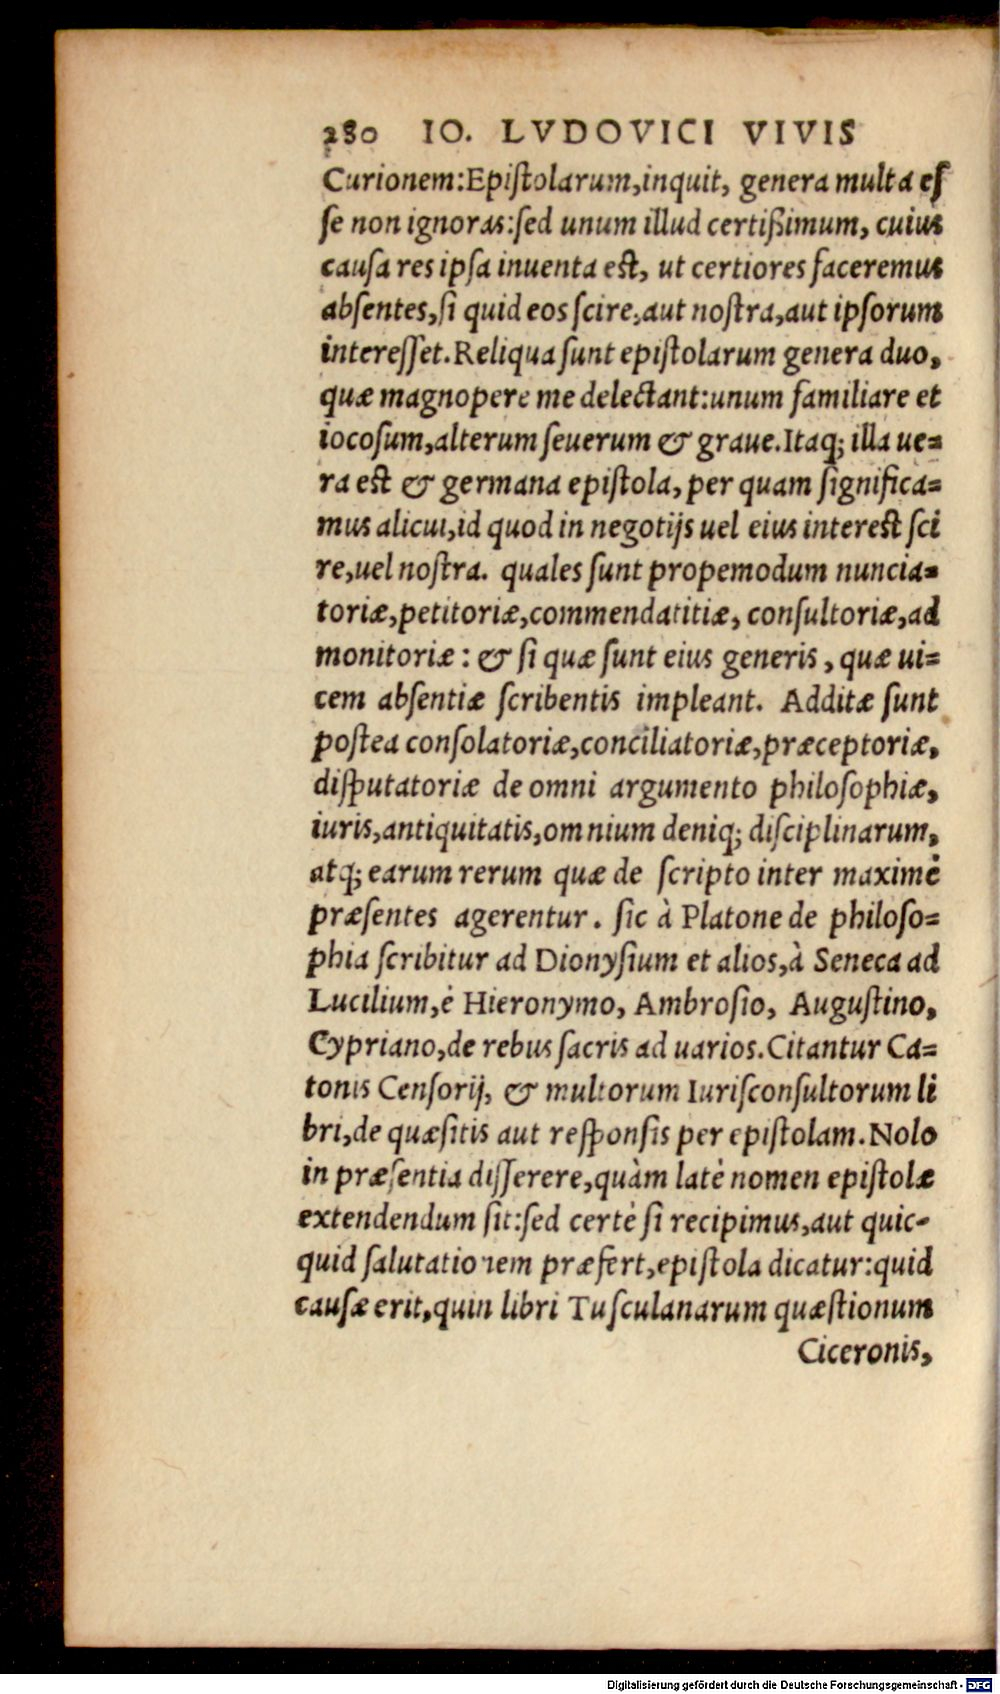 280 IO. LVDOVICI VIVIS
Curionem:Epiſtolarum,inquit, genera multa eſ
ſe non ignoras:ſed unum illud certißimum, cuius
cauſa res ipſa inuenta eſt, ut certiores faceremus
abſentes,ſi quid eos ſcire,aut noſtra,aut ipſorum
intereſſet.Reliqua ſunt epiſtolarum genera duo,
quæ magnopere me delectant:unum familiare et
iocoſum,alterum ſeuerum & graue.Itaq; illa ue=
ra eſt & germana epiſtola, per quam ſignifica=
mus alicui,id quod in negotijs uel eius intereſt ſci
re,uel noſtra. quales ſunt propemodum nuncia=
toriæ,petitoriæ,commendatitiæ, conſultoriæ,ad
monitoriæ: & ſi quæ ſunt eius generis, quæ ui=
cem abſentiæ ſcribentis impleant. Additæ ſunt
poſtea conſolatoriæ,conciliatoriæ,præceptoriæ,
diſputatoriæ de omni argumento philoſophiæ,
iuris,antiquitatis,omnium deniq; diſciplinarum,
atq; earum rerum quæ de ſcripto inter maximè
præſentes agerentur. ſic à Platone de philoſo=
phia ſcribitur ad Dionyſium et alios,à Seneca ad
Lucilium,é Hieronymo, Ambroſio, Auguſtino,
Cypriano,de rebus ſacris ad uarios.Citantur Ca=
tonis Cenſorij, & multorum Iuriſconſultorum li
bri,de quæſitis aut reſponſis per epiſtolam.Nolo
in præſentia diſſerere,quàm latè nomen epiſtolæ
extendendum ſit:ſed certè ſi recipimus,aut quic-
quid ſalutationem præfert,epiſtola dicatur:quid
cauſæ erit,quin libri Tuſculanarum quæſtionum
Ciceronis,
Digitalisierung gefördert durch die Deutsche Forschungsgemeinschaft - DFG